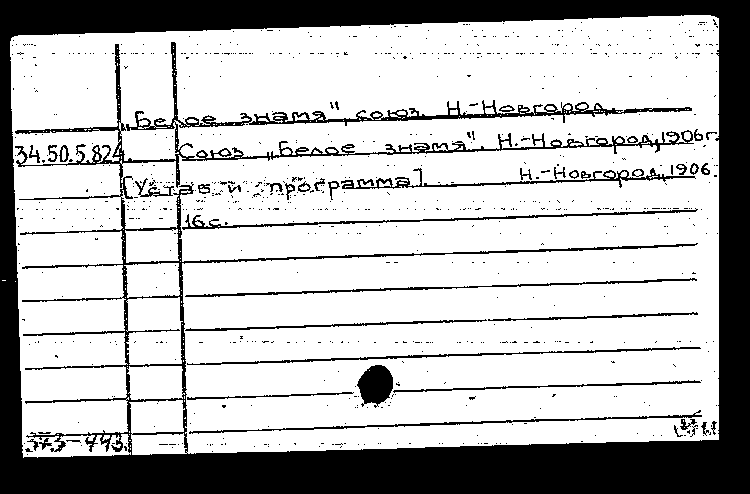 „Белое знамя", союз. Н.-Новгород.
34.50.5.824. Союз „Белое знамя". Н.-Новгород, 1906 г.
[Устав и программа]. Н.-Новгород, 1906.
16 с.
373-443.